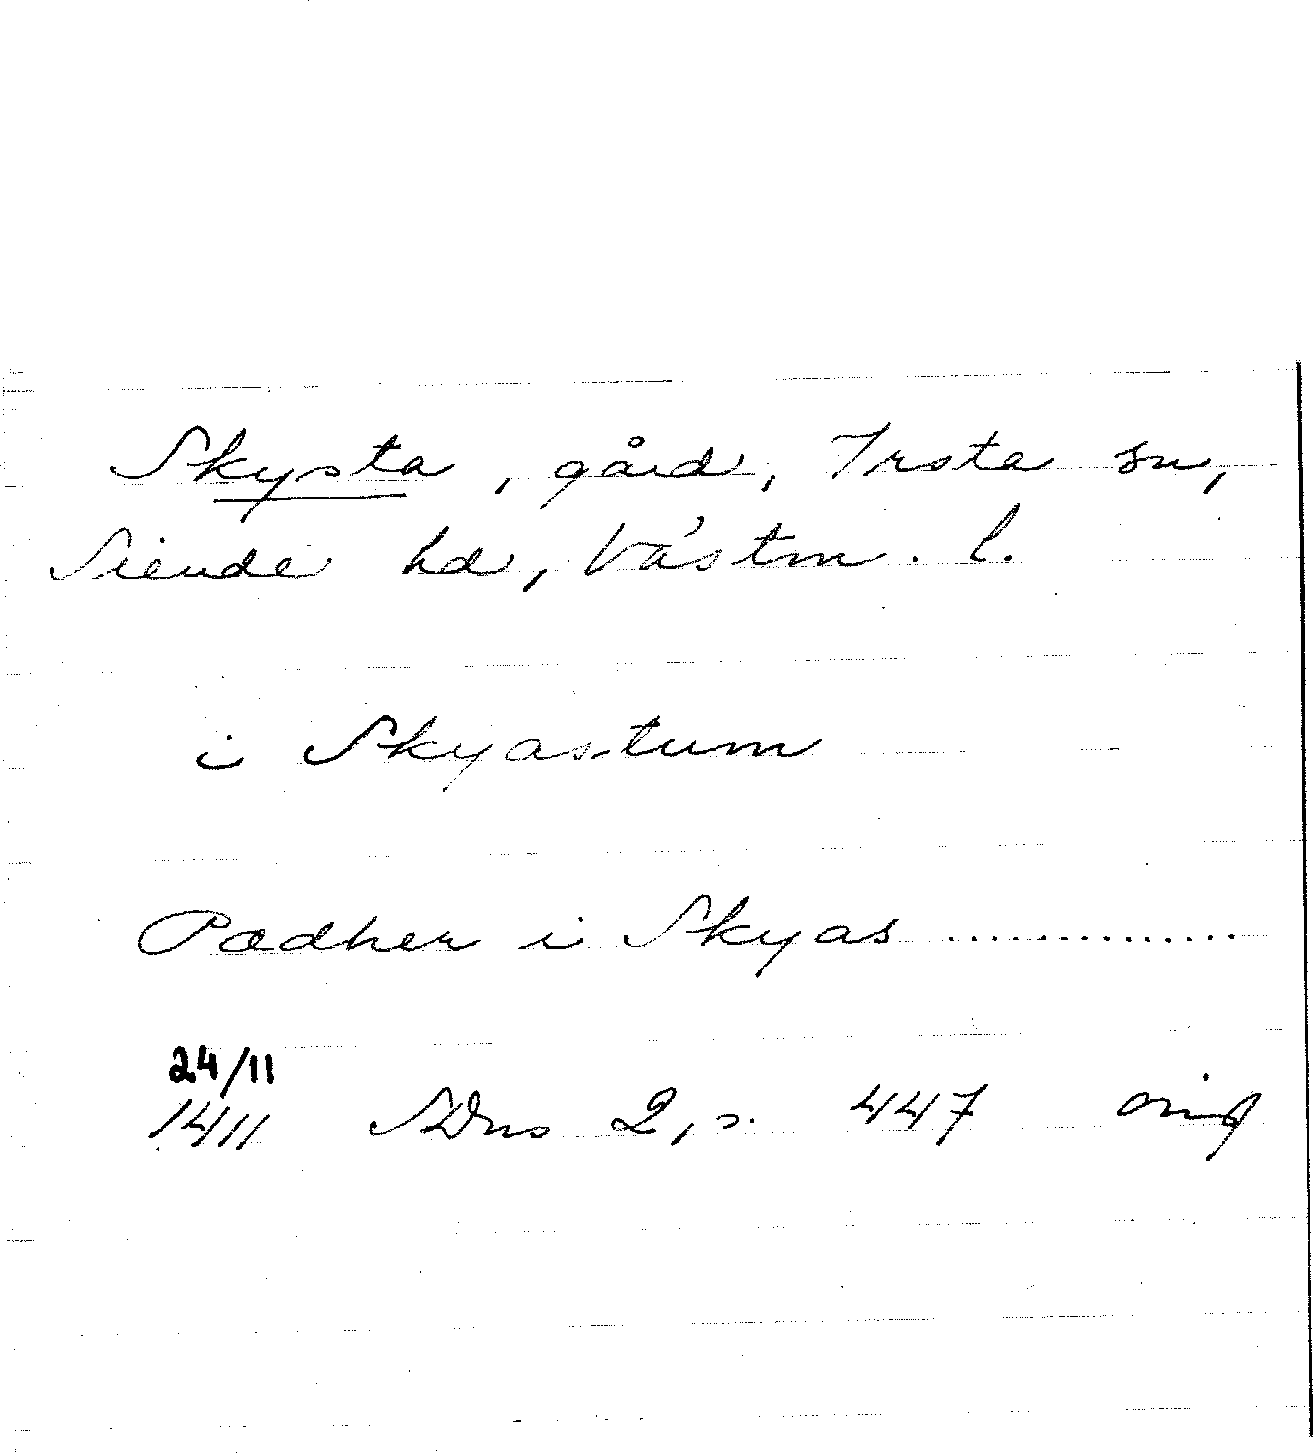 Skysta, gård, Irsta sn,
Siende hd, Västm. l.
i Skyastum
Pædher i Skyas ..............
24/11
1411 SDns 2, s. 447 orig